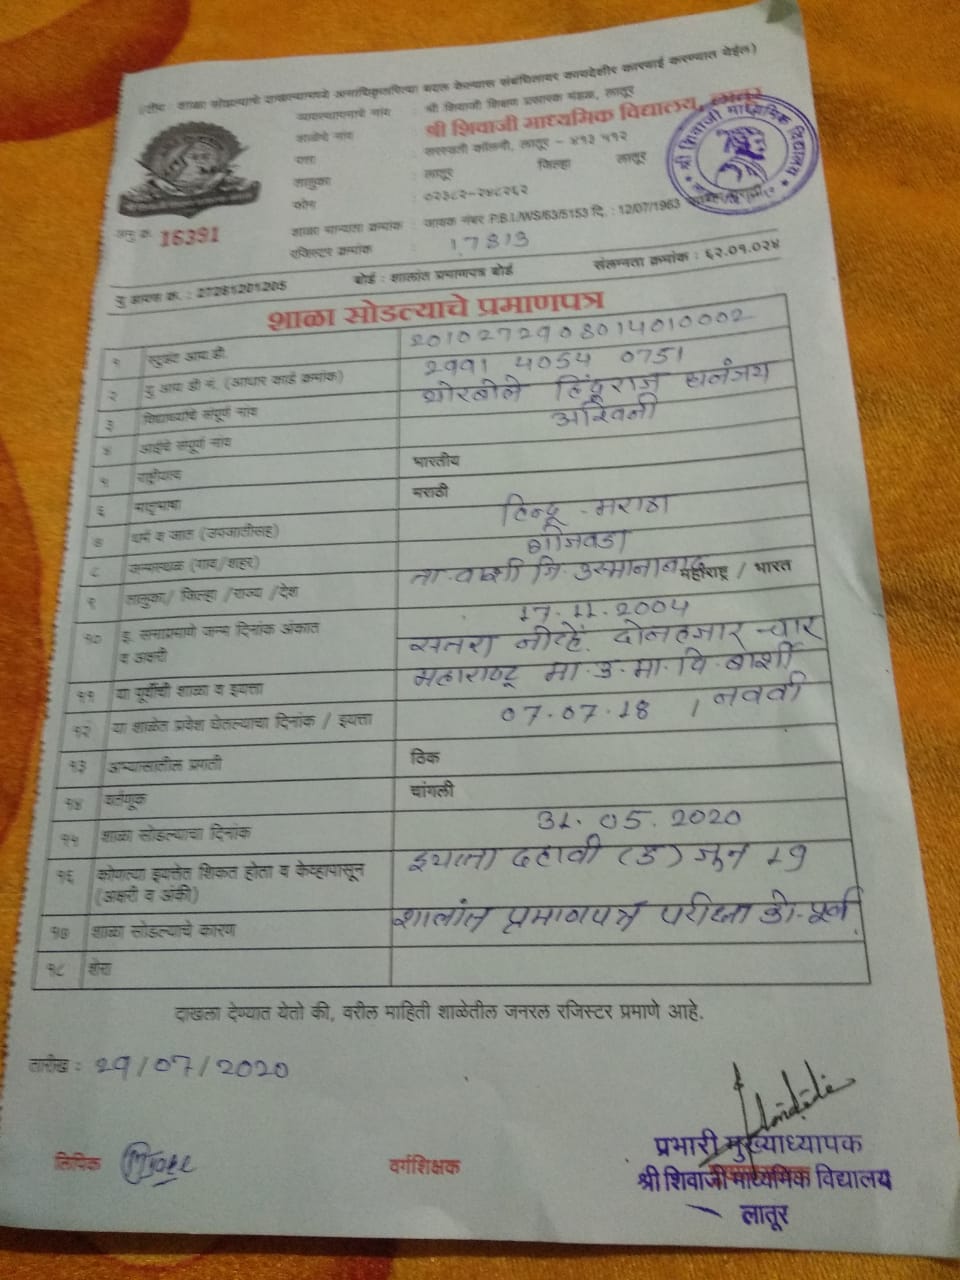 (टीप : शाळा सोडल्याचे दाखल्यामध्ये अनाधिकृतरित्या बदल केल्यास संबंधितावर कायदेशीर कारवाई करण्यात येईल)
व्यवस्थापनाचे नांव : श्री शिवाजी शिक्षण प्रसारक मंडळ, लातूर
शाळेचे नांव : श्री शिवाजी माध्यमिक विद्यालय, लातूर
पत्ता : सरस्वती कॉलनी, लातूर - ४१३ ५१२
तालुका : लातूर जिल्हा लातूर
फोन : ०२३८२-२४८२६२
शाळा मान्यता क्रमांक : जावक नंबर P.B.I./WS/63/5153 दि. : 12/07/1963
अनु क्र. 16391
रजिस्टर क्रमांक : 17813
श्री शिवाजी माध्यमिक विद्यालय
यु डायस क्र. : 27281201205 बोर्ड : शालांत प्रमाणपत्र बोर्ड संलग्नता क्रमांक : ६२.०१.०२४
शाळा सोडल्याचे प्रमाणपत्र
१ स्टुडंट आय.डी. 2010272908014010002
२ यु आय डी नं. (आधार कार्ड क्रमांक) 2991 4054 0751
३ विद्यार्थ्याचे संपूर्ण नांव थोरबोले हिंदूराज धनंजय
४ आईचे संपूर्ण नांव अश्विनी
५ राष्ट्रीयत्व भारतीय
६ मातृभाषा मराठी
७ धर्म व जात (उपजातीसह) हिन्दू - मराठा
८ जन्मस्थळ (गाव/शहर)
९ तालुका/ जिल्हा /राज्य /देश ता. वाशी जि. उस्मानाबाद महाराष्ट्र / भारत
१० इ. सनाप्रमाणे जन्म दिनांक अंकात 17.11.2004
व अक्षरी सतरा नोव्हें. दोनहजार चार
११ या पूर्वीची शाळा व इयत्ता महाराष्ट्र मा. उ. मा. वि. बार्शी
१२ या शाळेत प्रवेश घेतल्याचा दिनांक / इयत्ता 07.07.18 / नववी
१३ अभ्यासातील प्रगती ठिक
१४ वर्तणूक चांगली
१५ शाळा सोडल्याचा दिनांक 31.05.2020
१६ कोणत्या इयत्तेत शिकत होता व केव्हापासून इयत्ता दहावी (ड) जून 19
(अक्षरी व अंकी)
१७ शाळा सोडल्याचे कारण शालांत प्रमाणपत्र परीक्षा
१८ शेरा
दाखला देण्यात येतो की, वरील माहिती शाळेतील जनरल रजिस्टर प्रमाणे आहे.
तारीख : 29/07/2020
लिपिक वर्गशिक्षक
प्रभारी मुख्याध्यापक
श्री शिवाजी माध्यमिक विद्यालय
लातूर